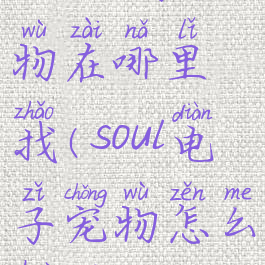 wù zài nǎ lǐ
物在哪里
zhǎo diàn
找(soul电
zǐ chǒng wù zěn me
子宠物怎么